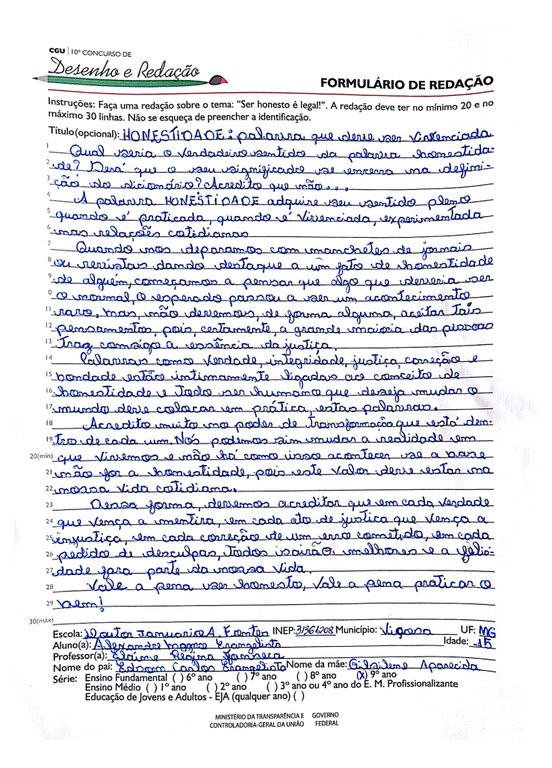 CGU | 10º CONCURSO DE
Desenho e Redação
FORMULÁRIO DE REDAÇÃO
Instruções: Faça uma redação sobre o tema: "Ser honesto é legal!". A redação deve ter no mínimo 20 e no
máximo 30 linhas. Não se esqueça de preencher a identificação.
Título(opcional): HONESTIDADE: palavra que deve ser vivenciada
1 Qual seria o verdadeiro sentido da palavra honestida-
2 de? Será que o seu significado se encerra na defini-
3 ção do dicionário? Acredito que não...
4 A palavra HONESTIDADE adquire seu sentido pleno
5 quando é praticada, quando é vivenciada, experimentada
6 nas relações cotidianas
7 Quando nos deparamos com manchetes de jornais
8 ou revistas dando destaque a um fato de honestidade
9 de alguém, começamos a pensar que algo que deveria ser
0 o normal, o esperado passou a ser um acontecimento
11 raro, mas, não devemos, de forma alguma, aceitar tais
12 pensamentos, pois, certamente, a grande maioria das pessoas
13 traz consigo a essência da justiça.
14 Palavras como verdade, integridade, justiça, correção e
15 bondade estão intimamente ligadas ao conceito de
16 honestidade e todo ser humano que deseja mudar o
17 mundo deve colocar em prática estas palavras.
18 Acredito muito no poder de transformação que está den-
19 tro de cada um. Nós podemos sim mudar a realidade em
20(min) que vivemos e não há como isso acontecer se a base
21 não for a honestidade, pois este valor deve estar na
22 nossa vida cotidiana.
23 Dessa forma, devemos acreditar que em cada verdade
24 que vença a mentira, em cada ato de justiça que vença a
25 injustiça, em cada correção de um erro cometido, em cada
26 pedido de desculpas, todos sairão melhores e a felici-
27 dade fará parte da nossa vida.
28 Vale a pena ser honesto, vale a pena praticar o
29 bem!
30(máx)
Escola: Doutor Januario A. Fontes INEP: 31961208 Município: Viçosa UF: MG
Aluno(a): Alexandre Magno Evangelista Idade: 15
Professor(a): Elaine Regina Fonseca
Nome do pai: Edson Carlos Evangelista Nome da mãe: Gilsilene Aparecida
Série: Ensino Fundamental ( ) 6º ano ( ) 7º ano ( ) 8º ano (X) 9º ano
Ensino Médio ( ) 1º ano ( ) 2º ano ( ) 3º ano ou 4º ano do E. M. Profissionalizante
Educação de Jovens e Adultos - EJA (qualquer ano) ( )
MINISTÉRIO DA TRANSPARÊNCIA E GOVERNO
CONTROLADORIA-GERAL DA UNIÃO FEDERAL